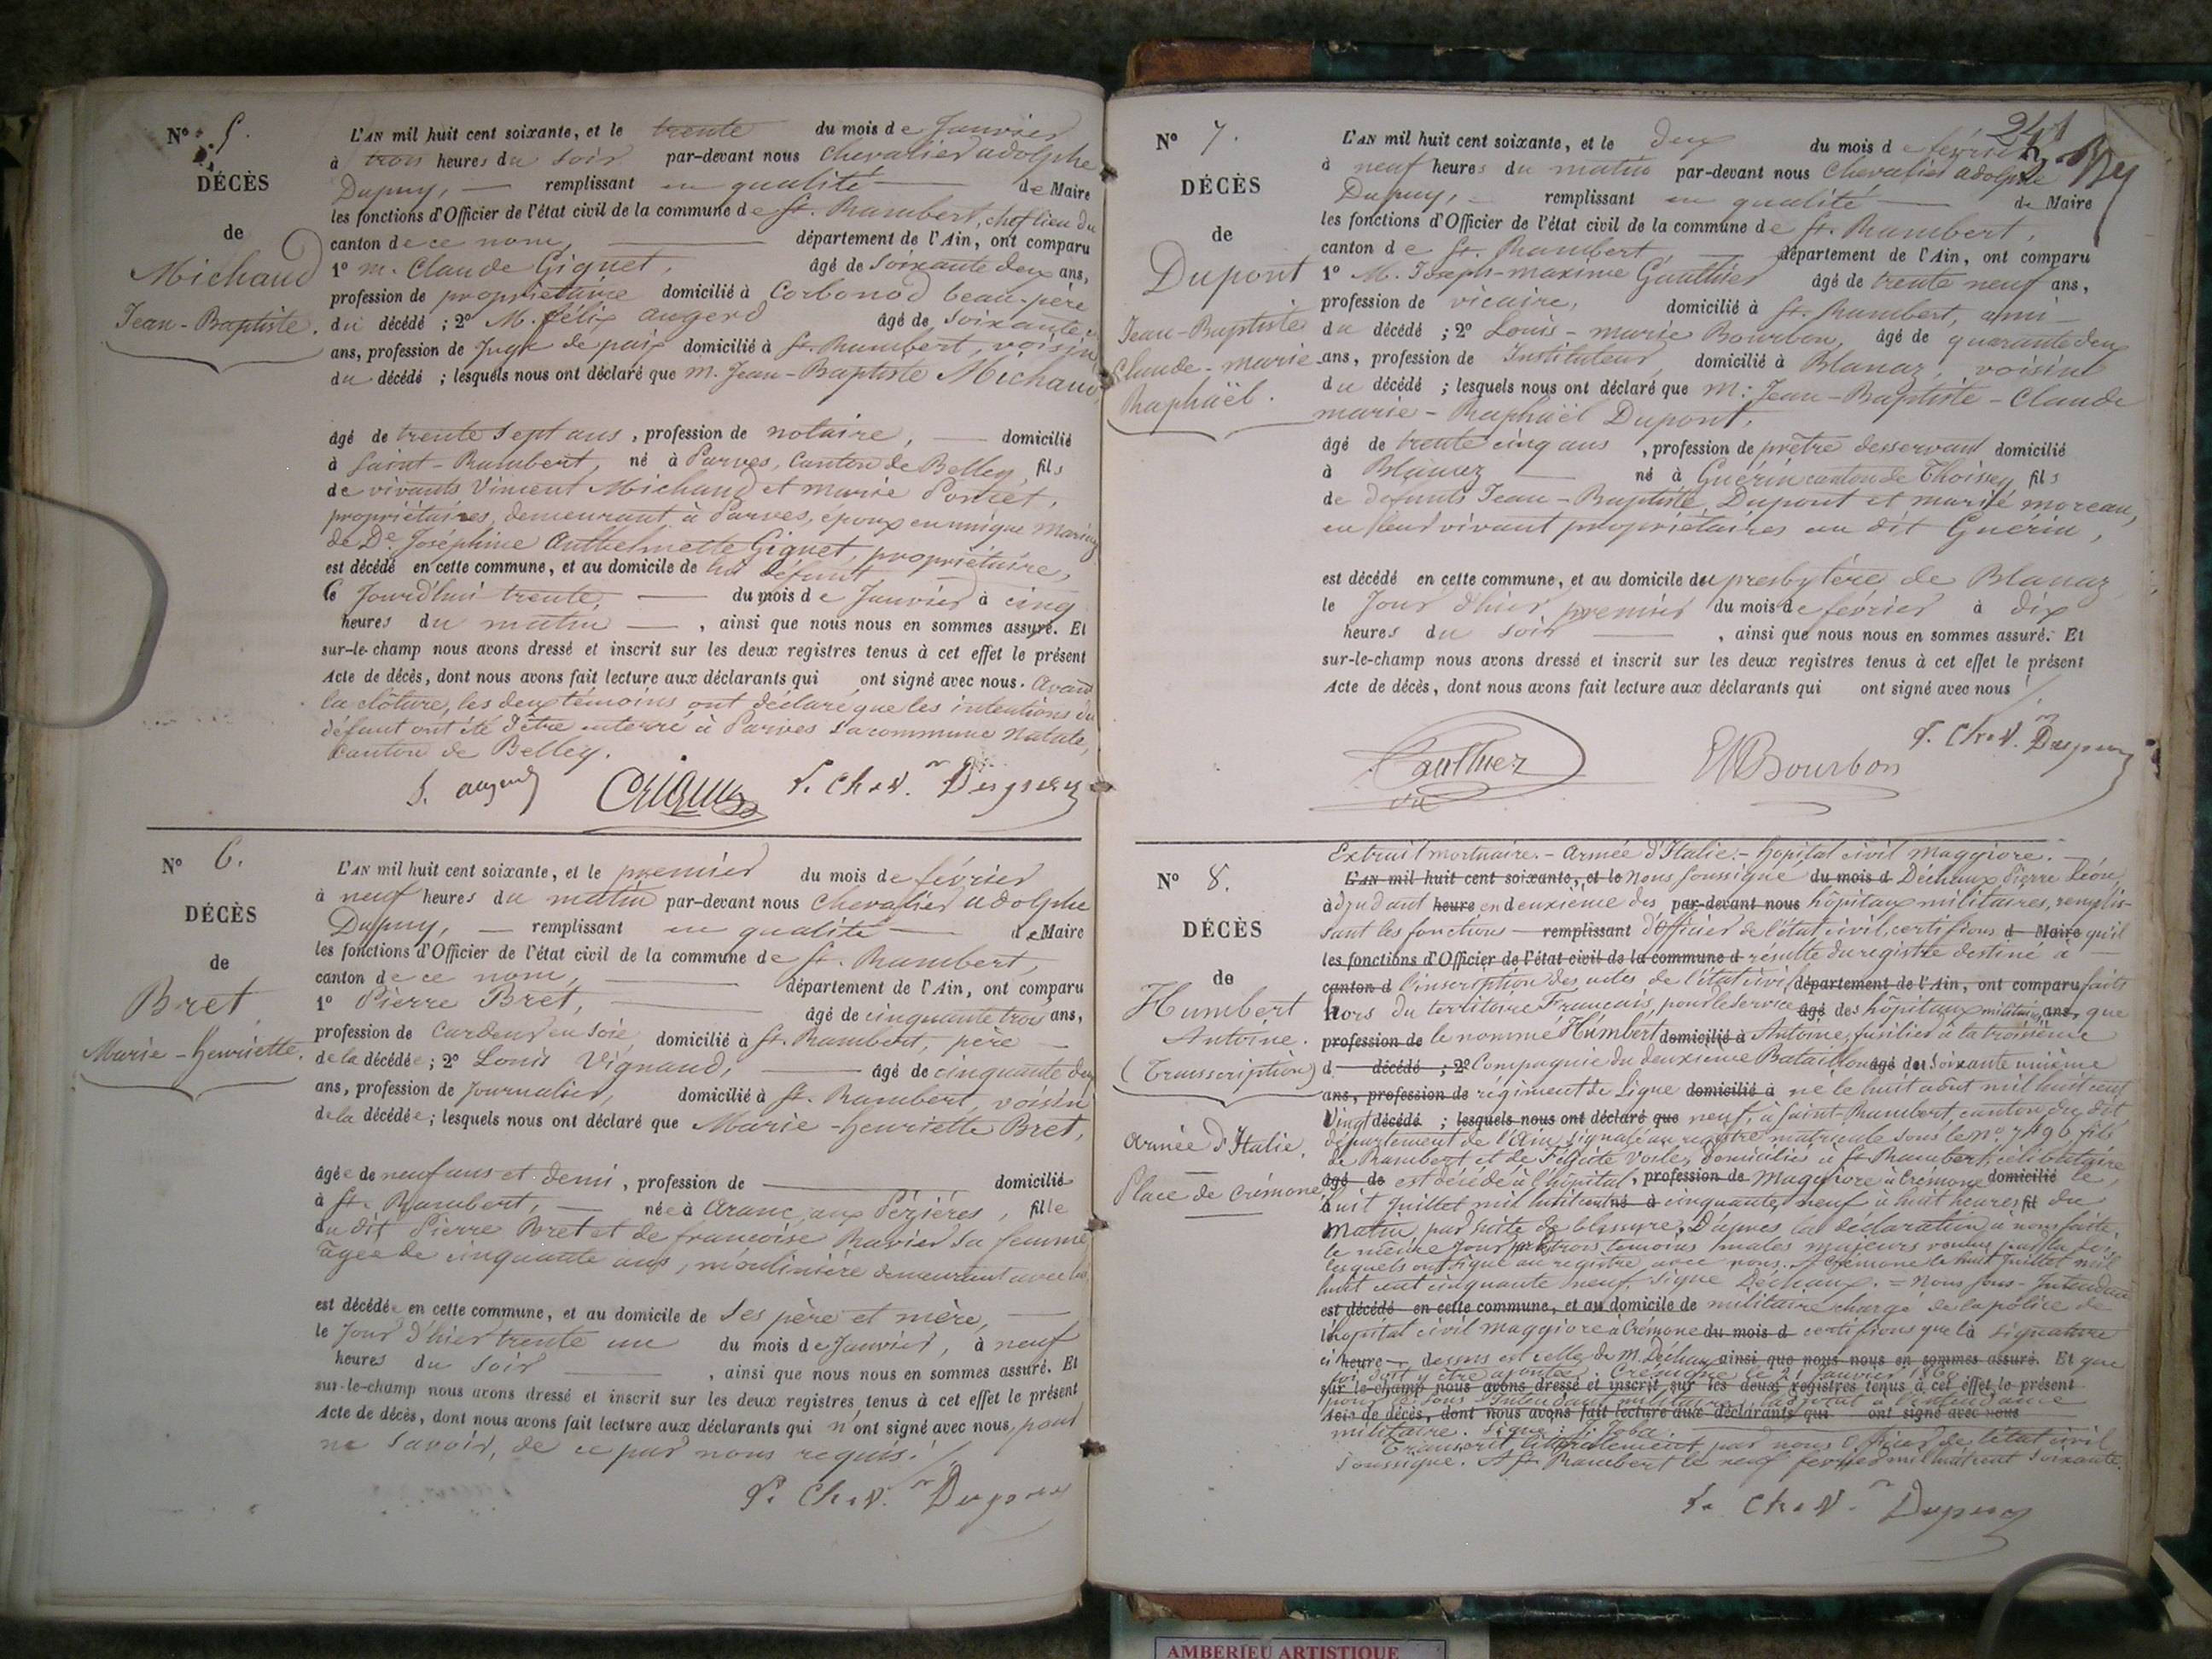 N° 5.
DÉCÈS
de
Michaud
Jean-Baptiste.
L'AN mil huit cent soixante, et le trente du mois de Janvier
à trois heures du soir par-devant nous Chevalier adolphe
Dupuy, — remplissant en qualité — de Maire
les fonctions d'Officier de l'état civil de la commune de St. Rambert, chef lieu du
canton de ce nom, — département de l'Ain, ont comparu
1° M. Claude Giguet, âgé de Soixante deux ans,
profession de propriétaire domicilié à Corbonod beau-père
du décédé ; 2° M. félix augerd âgé de Soixante
ans, profession de Juge de paix domicilié à St. Rambert, voisin
du décédé ; lesquels nous ont déclaré que M. Jean-Baptiste Michaud,
âgé de trente sept ans, profession de notaire, — domicilié
à Saint-Rambert, né à Parves, Canton de Belley, fils
de vivants Vincent Michaud et marie Poncet,
propriétaires, demeurant à Parves, époux en unique Mariage
de De. Joséphine Anthelmette Giguet, propriétaire,
est décédé en cette commune, et au domicile de lui défunt
le Jourd'hui trente, — du mois de Janvier à cinq
heures du matin —, ainsi que nous nous en sommes assuré. Et
sur-le-champ nous avons dressé et inscrit sur les deux registres tenus à cet effet le présent
Acte de décès, dont nous avons fait lecture aux déclarants qui ont signé avec nous. Avant
la clôture, les deux témoins ont déclaré que les intentions du
défunt ont été d'être enterré à Parves sa commune natale,
Canton de Belley.
f. augerd Giguet Le Chev.r Dupuy
N° 6.
DÉCÈS
de
Bret
Marie-henriette.
L'AN mil huit cent soixante, et le premier du mois de février
à neuf heures du matin par-devant nous Chevalier adolphe
Dupuy, — remplissant en qualité — de Maire
les fonctions d'Officier de l'état civil de la commune de St. Rambert,
canton de ce nom, — département de l'Ain, ont comparu
1° Pierre Bret, — âgé de cinquante trois ans,
profession de Cardeur en Soie, domicilié à St. Rambert, père —
de la décédée ; 2° Louis Vignaud, — âgé de cinquante deux
ans, profession de Journalier, domicilié à St. Rambert, voisin
de la décédée ; lesquels nous ont déclaré que Marie-henriette Bret,
âgée de neuf ans et demi, profession de — domicilié
à St. Rambert, — née à Aranc, aux Pézières, fille
du dit Pierre Bret et de francoise Ravier sa femme
âgée de cinquante ans, moulinière demeurant avec lui
est décédée en cette commune, et au domicile de Ses père et mère, —
le Jour d'hier trente un du mois de Janvier, à neuf
heures du Soir —, ainsi que nous nous en sommes assuré. Et
sur-le-champ nous avons dressé et inscrit sur les deux registres tenus à cet effet le présent
Acte de décès, dont nous avons fait lecture aux déclarants qui n'ont signé avec nous, pour
ne Savoir, de ce par nous requis./.
Le Chev.r Dupuy
241
N° 7.
DÉCÈS
de
Dupont
Jean-Baptiste
Claude-marie
Raphaël.
L'AN mil huit cent soixante, et le deux du mois de février
à neuf heures du matin par-devant nous Chevalier adolphe
Dupuy, — remplissant en qualité — de Maire
les fonctions d'Officier de l'état civil de la commune de St. Rambert,
canton de St. Rambert, — département de l'Ain, ont comparu
1° M. Joseph-maxime Gauthier âgé de trente neuf ans,
profession de vicaire, domicilié à St. Rambert, ami —
du décédé ; 2° Louis-marie Bourbon, âgé de quarante deux
ans, profession de Instituteur, domicilié à Blanaz, voisin
du décédé ; lesquels nous ont déclaré que M. Jean-Baptiste-Claude
marie-Raphaël Dupont,
âgé de trente cinq ans, profession de prêtre desservant domicilié
à Blanaz — né à Guérin canton de Thoissey fils
de défunts Jean-Baptiste Dupont et marie moreau,
en leur vivant propriétaires au dit Guérin,
est décédé en cette commune, et au domicile du presbytère de Blanaz
le Jour d'hier premier du mois de février à dix
heures du Soir —, ainsi que nous nous en sommes assuré. Et
sur-le-champ nous avons dressé et inscrit sur les deux registres tenus à cet effet le présent
Acte de décès, dont nous avons fait lecture aux déclarants qui ont signé avec nous./.
Gauthier Bourbon Le Chev.r Dupuy
vic
N° 8.
DÉCÈS
de
Humbert
Antoine.
(Transcription)
Armée d'Italie,
Place de Crémone
Extrait mortuaire. — Armée d'Italie. — hopital civil Maggiore. —
L'AN mil huit cent soixante, et le Nous Soussigné du mois d Déchaux Pierre Léon,
adjudant heure en deuxieme des par-devant nous hôpitaux militaires, remplis-
sant les fonctions — remplissant d'Officier de l'état civil, certifions d Maire qu'il
les fonctions d'Officier de l'état civil de la commune d résulte du registre destiné à —
canton d l'inscription des actes de l'état civil département de l'Ain, ont comparu faits
hors du territoire Francais, pour le service âgé des hôpitaux militaires, ans, que
profession de le nommé Humbert domicilié à Antoine, fusilier à la troisième
d — décédé ; 2° Compagnie du deuxieme Bataillon âgé de du Soixante unième
ans, profession de régiment de Ligne domicilié à né le huit août mil huit cent
Vingt décédé ; lesquels nous ont déclaré que neuf, à Saint-Rambert, canton du dit,
département de l'Ain, signalé au registre matricule sous le n° 7490 fils
de Rambert et de Félicité , domiciliés à St. Rambert, célibataire
âgé de est décédé à l'hôpital, profession de Maggiore à Crémone domicilié le,
huit Juillet mil huit cent né à cinquante neuf à huit heures fil du
Matin, par suite de blessure, D'après la déclaration à nous faite,
le même Jour par trois témoins males majeurs voulus par la loi
lesquels ont signé au registre avec nous. A Crémone le huit Juillet mil
huit cent cinquante neuf signé Déchaux. = Nous Sous-Intendant
est décédé en cette commune, et au domicile de militaire chargé de la police de
l'hopital civil Maggiore à Crémone du mois d certifions que la signature
ci heure dessus est celle de M. Déchaux ainsi que nous nous en sommes assuré. Et que
foi doit y être ajoutée. Crémone le 21 Janvier 1860
sur le-champ nous avons dressé et inscrit sur les deux registres tenus à cet effet le présent
pour le Sous-Intendant militaire l'adjoint à l'intendance
Acte de décès, dont nous avons fait lecture aux déclarants qui ont signé avec nous
militaire. Signé :
Transcrit littéralement par nous Officier de l'état civil
Soussigné. A St. Rambert le neuf février mil huit cent soixante.
Le Chev.r Dupuy
AMBERIEU ARTISTIQUE